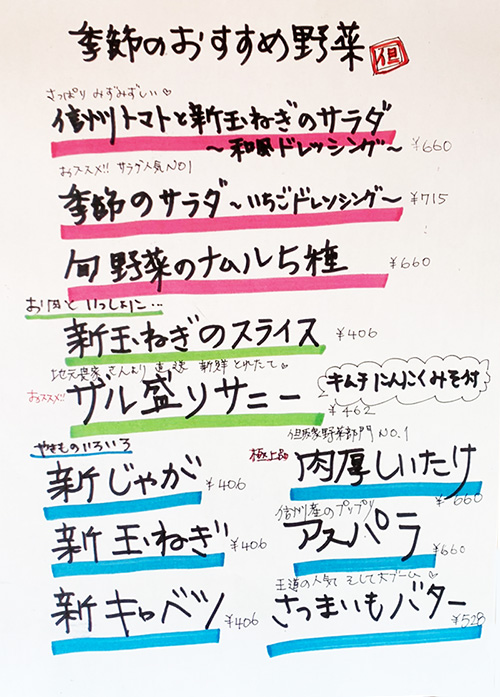 季節のおすすめ野菜 但
さっぱり みずみずしい♡
信州トマトと新玉ねぎのサラダ
～和風ドレッシング～ ¥660
おススメ!! サラダ人気NO1
季節のサラダ～いちごドレッシング～ ¥715
旬野菜のナムル5種 ¥660
お肉と いっしょに…
新玉ねぎのスライス ¥406
地元農家さんより 直送 新鮮 とれたて♡
おススメ!! ザル盛りサニー ¥462
キムチにんにくみそ付
やきものいろいろ
新じゃが ¥406
新玉ねぎ ¥406
新キャベツ ¥406
野菜部門 NO.1
極上品 肉厚しいたけ ¥660
信州産のプップリ
アスパラ ¥660
王道の人気 そして大ブーム♡
さつまいもバター ¥528